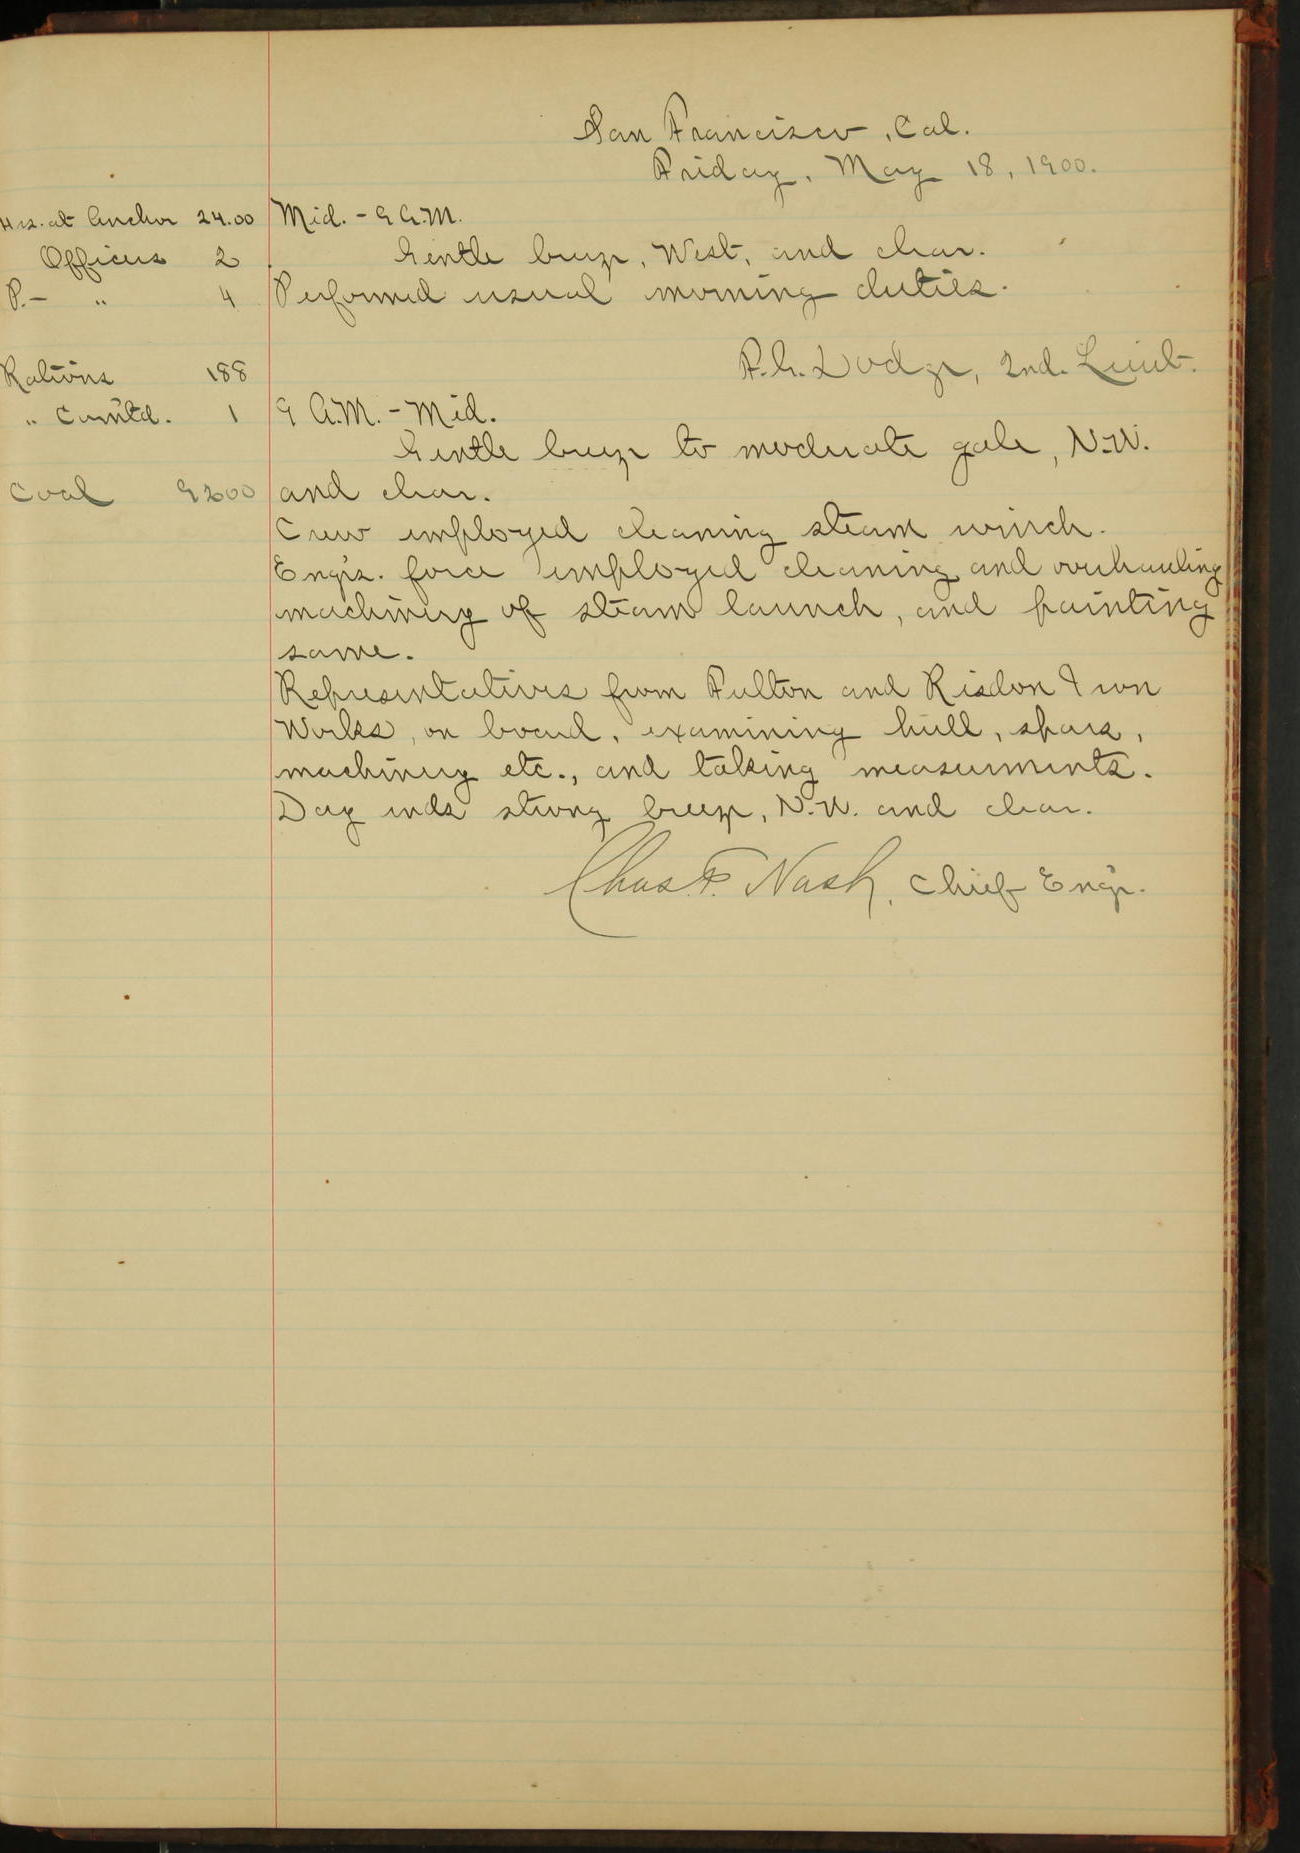 San Francisco, Cal.
Friday, May 18, 1900.
Hrs. at Anchor 24.00
Officers 2
P.- " 4
Rations 188
" Com'td. 1
Coal 9200
Mid. - 9 A.M.
Gentle breeze, West, and clear.
Performed usual morning duties.
F.G. Dodge, 2nd. Lieut.
9 A.M. - Mid.
Gentle breeze to moderate gale, N.W.
and clear.
Crew employed cleaning steam winch.
Eng'rs. force employed cleaning and overhauling
machinery of steam launch, and painting
same.
Representatives from Fulton and Risdon Iron
Works, on board, examining hull, spars,
machinery etc., and taking measurements.
Day ends strong breeze, N.W. and clear.
Chas. F. Nash, Chief Eng'r.